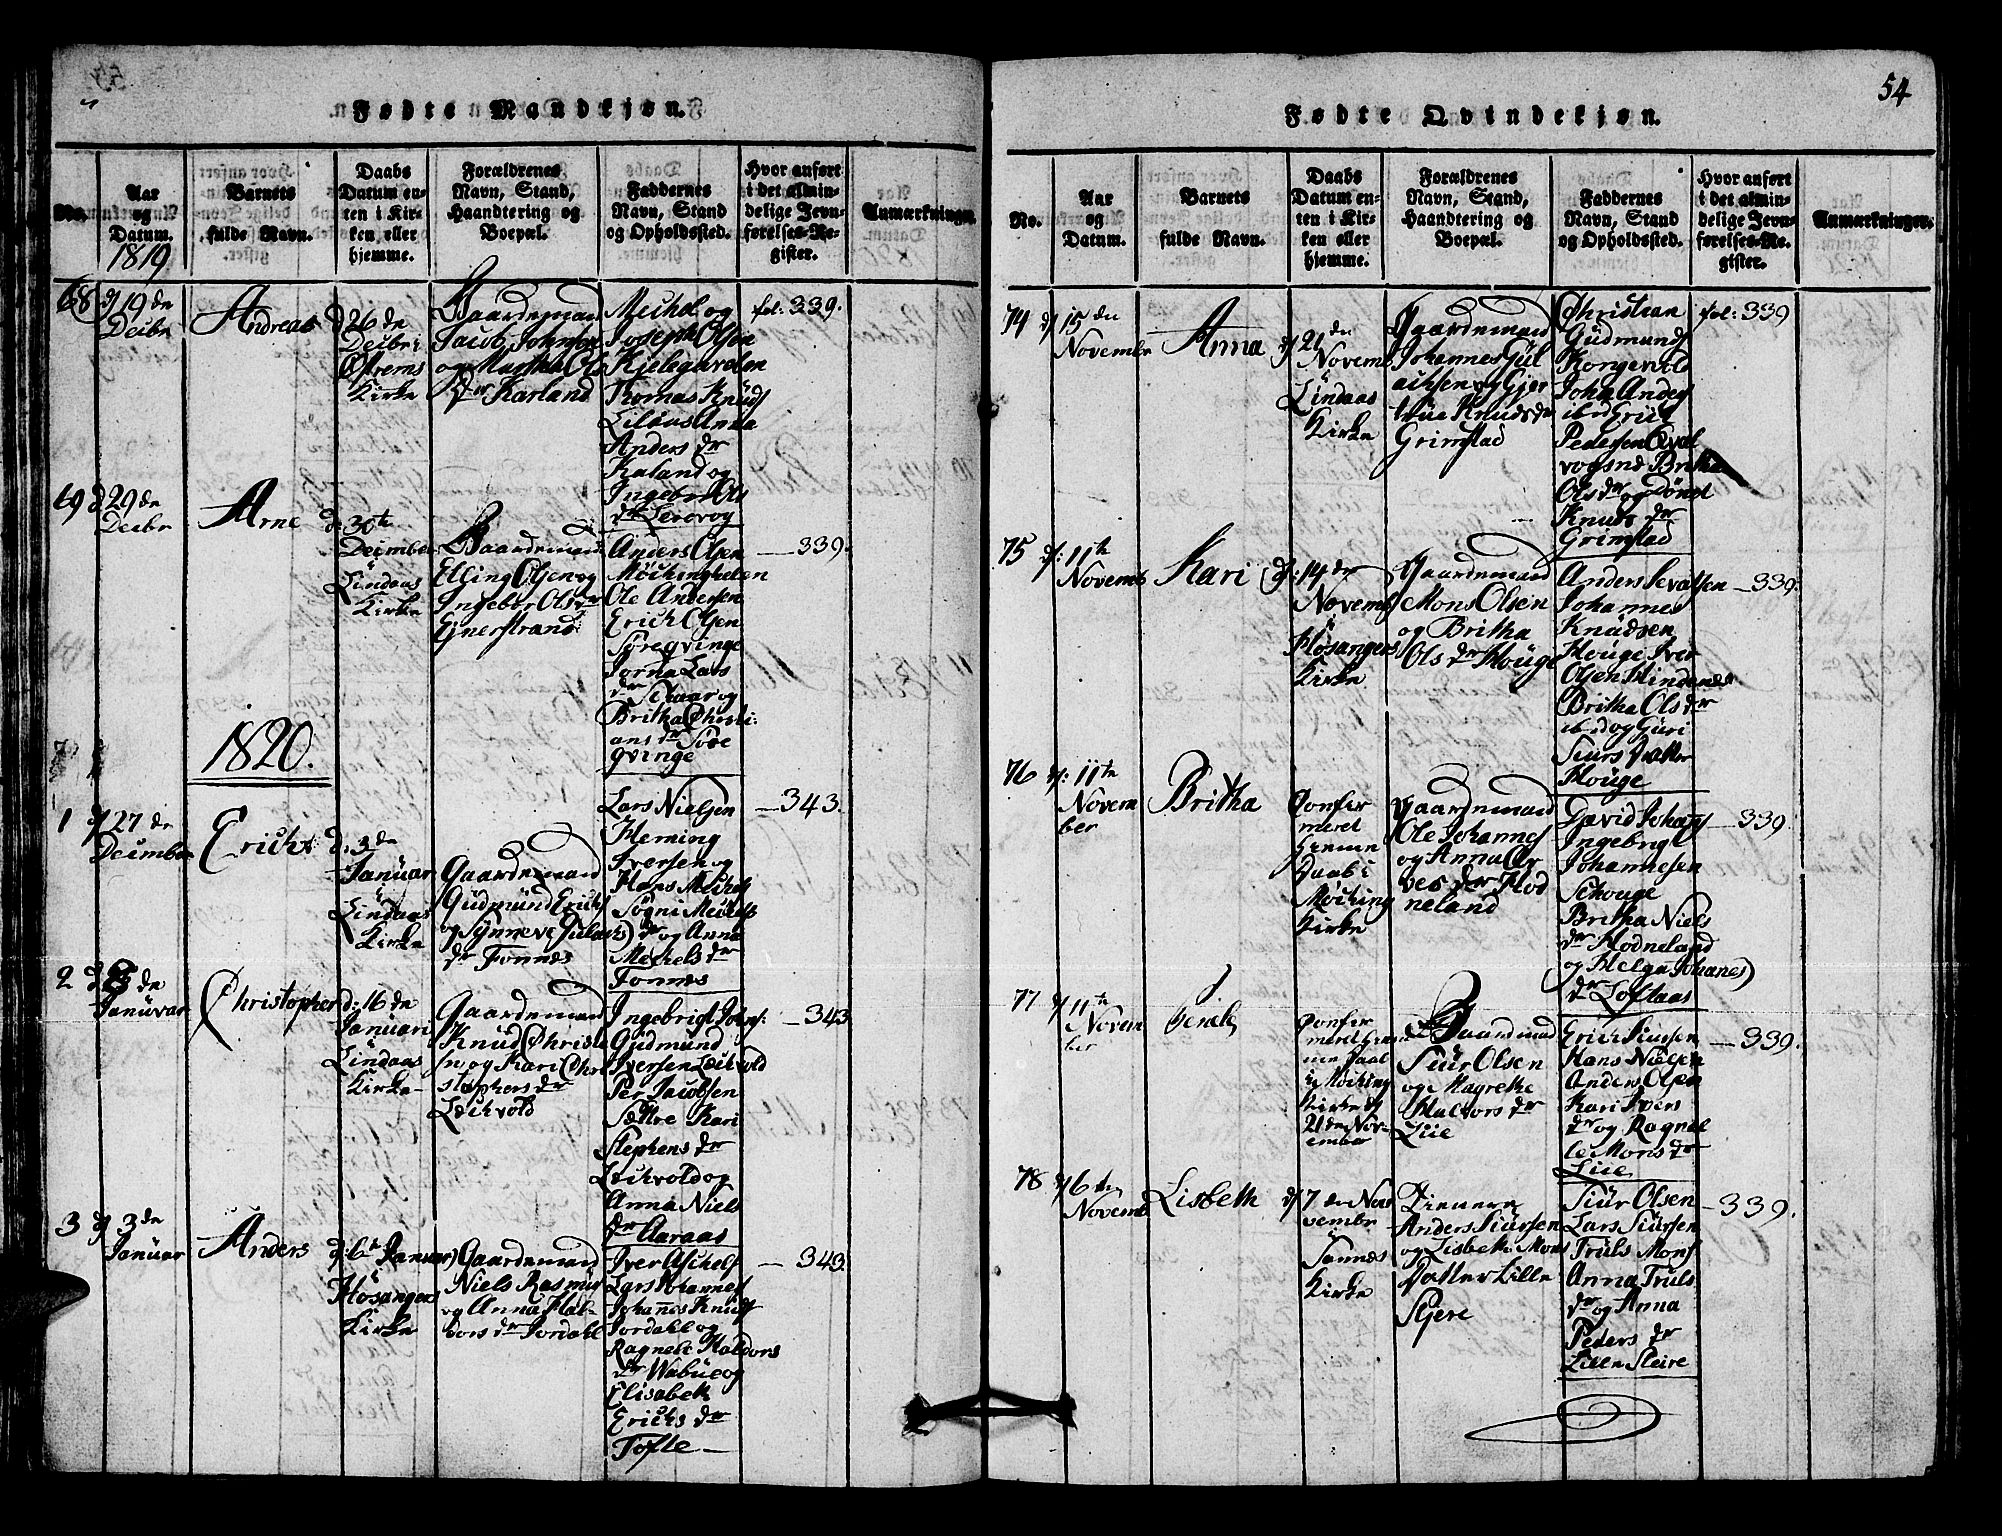 Fødte Mandkjøn.
No.
Aar
og
Datum.
1819
Barnets
fulde Navn.
Daabs
Datum en-
ten i Kir-
ken eller
hjemme.
Forældrenes
Navn, Stand,
Haandtering og
Boepæl.
Faddernes
Navn, Stand
og Opholdssted.
Hvor anført
i det almin-
delige Jevn-
førelses-Re-
gister.
Anmærkninger.
68
d 19 de
Decbr
Andreas
d 26 de
Decbr i
Kirke
Gaardemand
Jacob Johnsen
og Martha Ols
dr Karland
Michel og
Joseph Olsen
Kjelegarden
Thomas Knuds
Anna
Anders dr
Kaland og
Ingebor Ols
dr Lerovog
fol: 339.
69
d 29 de
Decbr
Arne
d. 30te
Decmber
i
Lindaas
Kirke
Gaardemand
Elling Olsen og
Ingebor Ols dr
Ejnerstrand
Anders Olsen
Møckinghelen
Ole Andersen
Erich Olsen
Søreqvinge
Jorna Lars
dr Schaar og
Britha Christi:
ans dr Søre
qvinge
339.
1820.
1
d 27 de
Decmber
Erich
d. 3 de
Januar
i
Lindaas
Kirke
Gaardemand
Gudmund Erichs
og Synneve Gulachs
dr Fonnes
Lars Nielsen
Heming
Iversen og
Hans Michels
Søgni Michels
dr og Anna
Michels dr
Fonnes
343.
2
de
Januvar
Christopher
d: 16 de
Januari
Lindaas
Kirke
Gaardemand
Knud Christe
og Kari Chri
stophers dr
Leckvold
Ingebrigt Johns:
Gudmund
Iversen Leckvold
Per Jacobsen
Sætre Kari
Stephens dr
Leckvold og
Anna Niels
dr Aaraas
343
3
d 3 de
Januar
Anders
d: 6te Januar
Hosangers
Kirke
Gaardemand
Niels Rasmus
og Anna Hal-
vors dr Jordahl
Iver Aschels
Lars Johannes
Johanes Knuds
Jordahl og
Ragnele Haldors
dr Wabue og
Elisabeth
Erichs dr
Tofte
343.
54
Fødte Qvindekjøn.
No.
Aar
og
Datum.
Barnets
fulde Navn.
Daabs
Datum en-
ten i Kir-
ken eller
hjemme.
Forældrenes
Navn, Stand,
Haandtering og
Boepæl.
Faddernes
Navn, Stand
og Opholdssted.
Hvor anført
i det almin-
delige Jevn-
førelses-Re-
gister.
Anmærkninger.
74
d 15 de
Novembr
Anna
d 21 de
Novemb
i
Lindaas
Kirke
Gaardemand
Johannes Gul
achsen og Gjer
True Knuds dr
Grimstad
Christian
Gudmunds
Kongevold
Joha Anders
ibid Erich
Pedersen Qval
vogsne Britha
Ols dr og Dønd
Knuds dr
Grimstad
fol: 339
75
d: 11te
Novemb
Kari
d: 14 de
Novemb
i
Hosangers
Kirke
Gaardemand
Mons Olsen
og Britha
Ols dr Houge
Anders Sevatsen
Johannes
Knudsen
Houge Iver
Olsen Hindenes
Britha Ols dr
ibid og Guri
Siurs Datter
Houge
339.
76
d: 11te
Novem
ber
Britha
Confir
meret
hiemme
Daab i
Møcking
Kirke
Gaardemand
Ole Johannes
og Anna Ar
ves dr Hod
neland
David Johans
Ingebrigt
Johannesen
Schouge
Britha Niels
dr Hodneland
og Helga Johanes
dr Loftaas
339
77
d 11te
Novem
ber
Confir
meret hiem
me Daab
i Møcking
Kirke d
21 de Nov-
ember
Gaardmand
Siur Olsen
og Magrethe
Halvors dr
Lie
Erich Siursen
Hans Nielsen
Anders Olsen
Kari Ivers
dr og Ragnel
le Mons dr
Lie
339.
78
d 6 te
Novemb
Lisbeth
d 7 de No
vembr
i
Sannæs
Kirke
Anders Siursen
og Lisbeth Mons
Datter Lille
Skjere
Siur Olsen
Lars Siursen
Truls Mons
Anna Truls
dr og Anna
Peders dr
Lille Skeire
339.